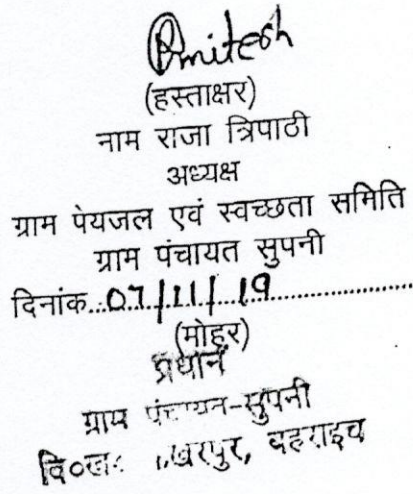 Amitesh
(हस्ताक्षर)
नाम राजा त्रिपाठी
अध्यक्ष
ग्राम पेयजल एवं स्वच्छता समिति
ग्राम पंचायत सुपनी
दिनांक...07/11/19...
(मोहर)
प्रधान
ग्राम पंचायत-सुपनी
वि०ख० बहराइच